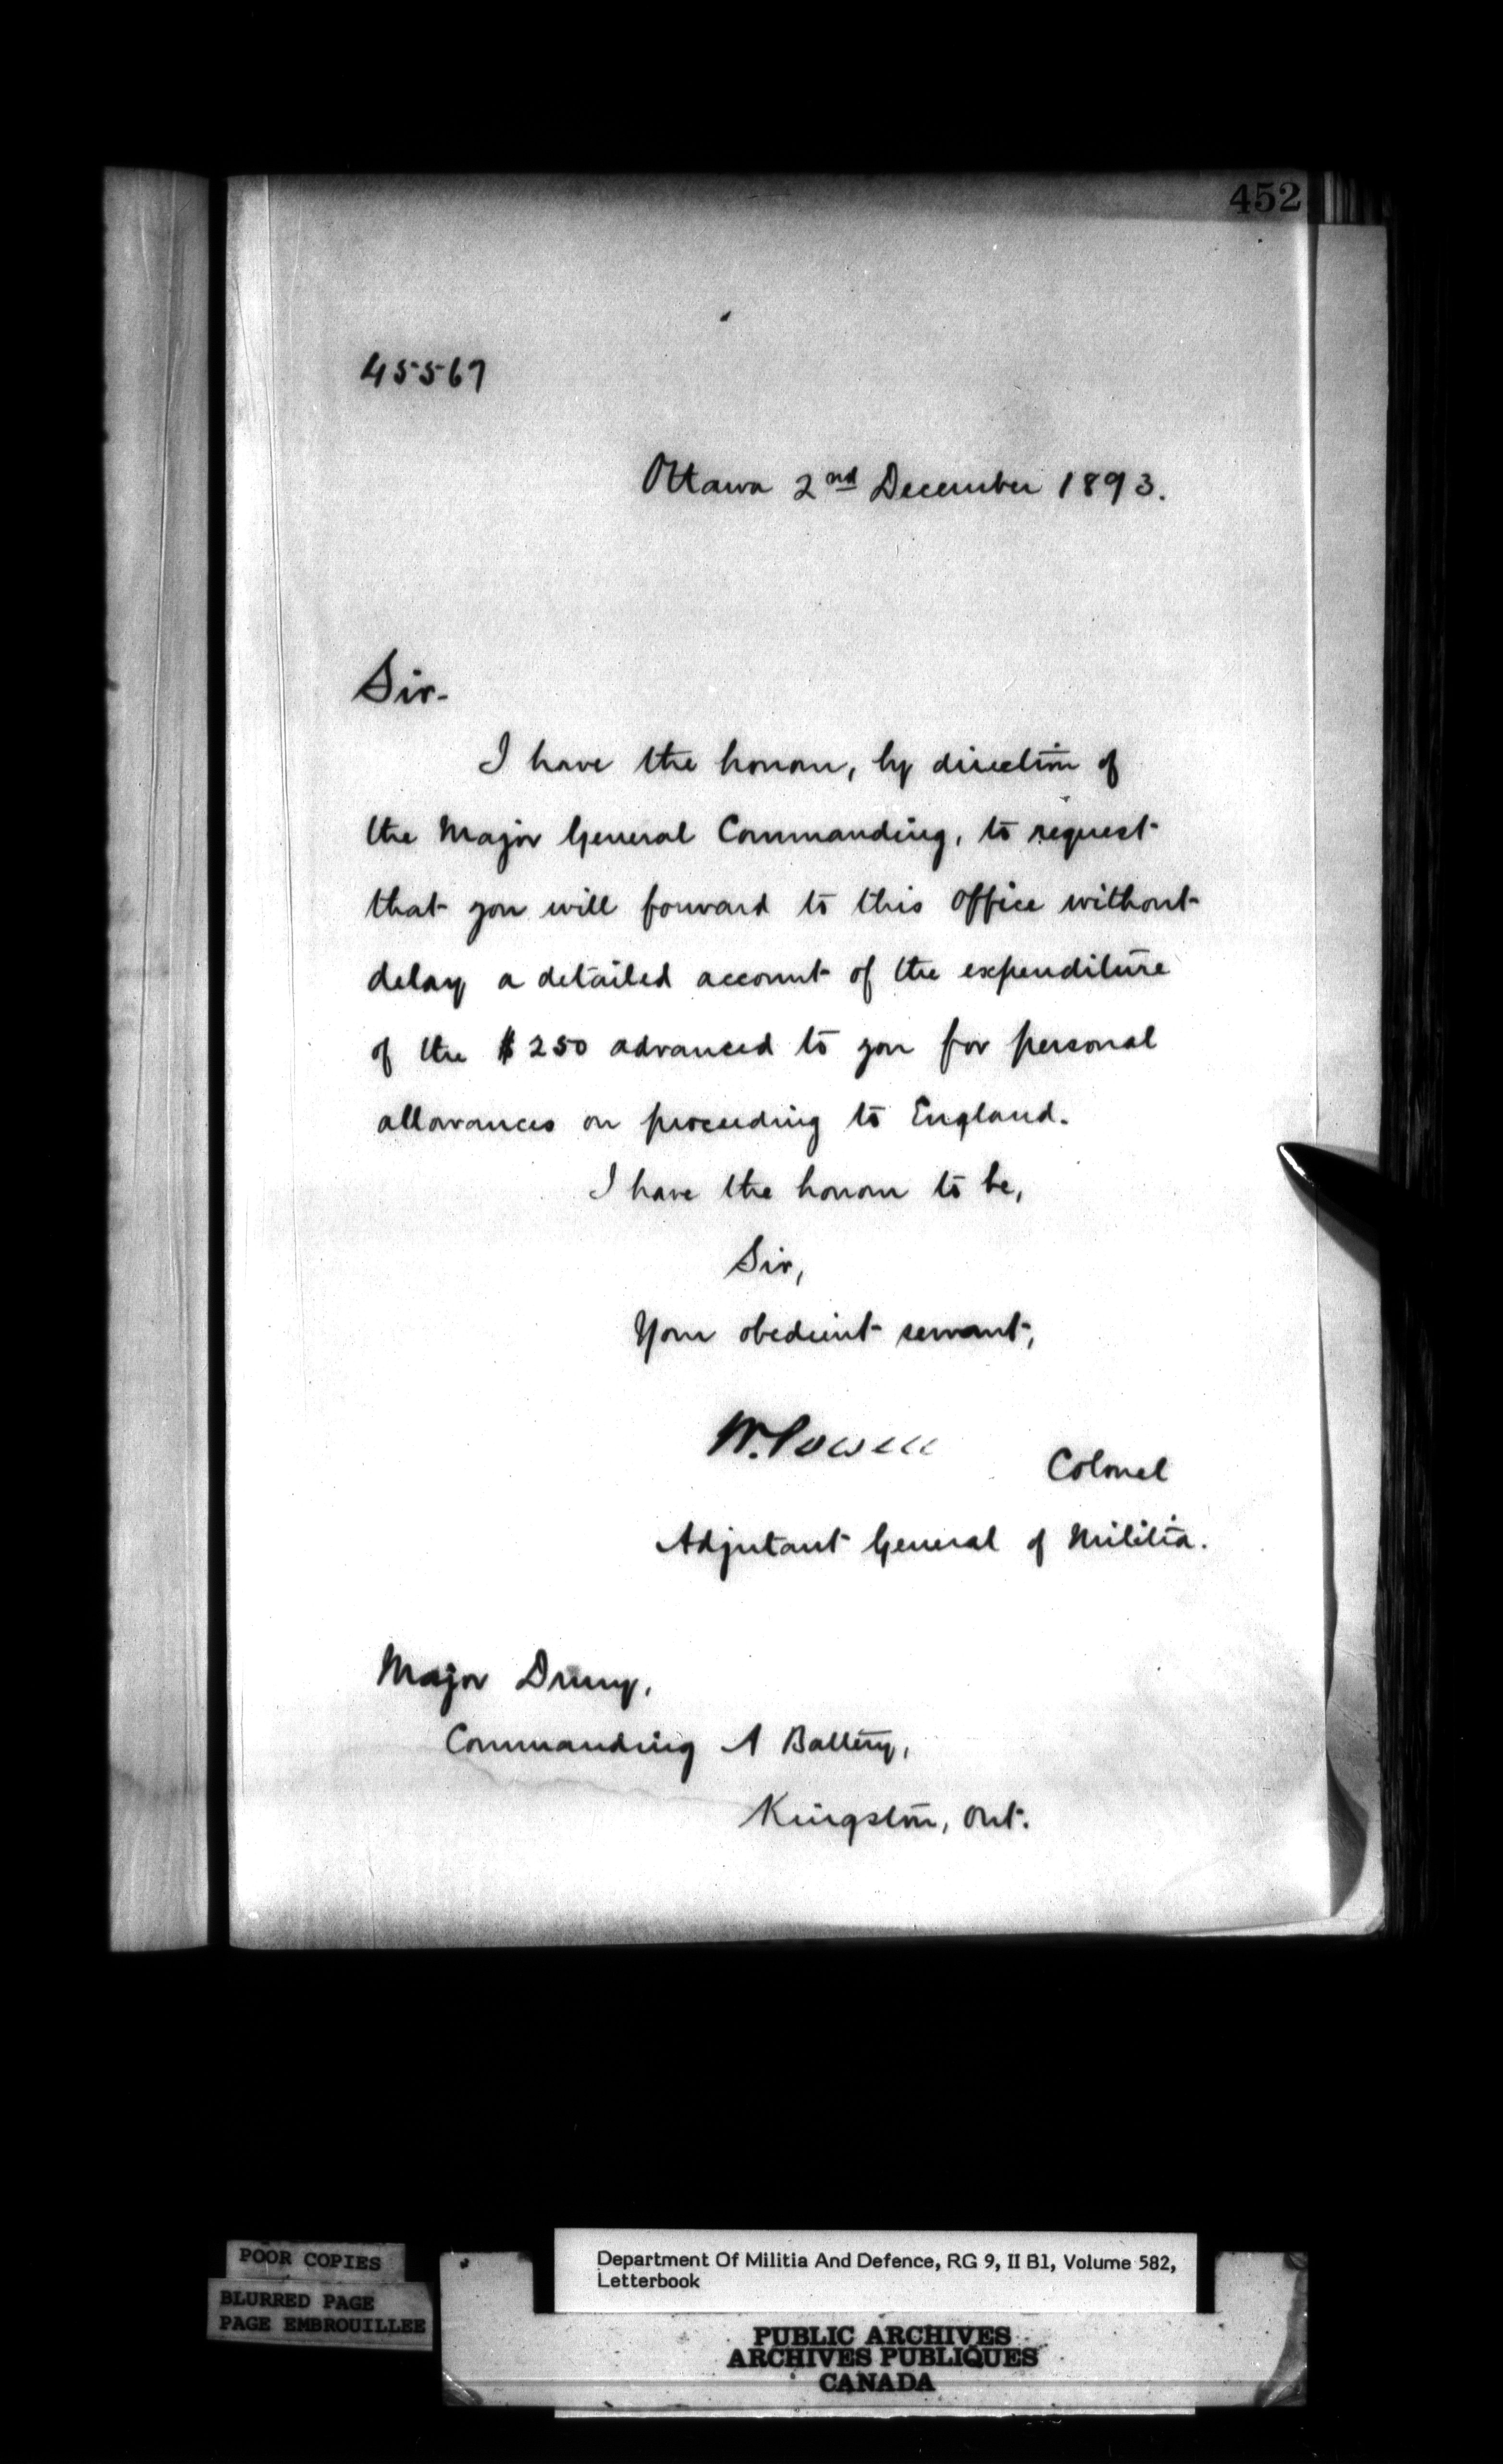 452
45567
Ottawa 2nd December 1893.
Sir-
I have the honour, by direction of
the Major General Commanding, to request
that you will forward to this Office without
delay a detailed account of the expenditure
of the $250 advanced to you for personal
allowances on proceeding to England.
I have the honour to be,
Sir,
Your obedient servant,
W. Powell
Colonel
Adjutant General of Militia.
Major Drury,
Commanding A Battery,
Kingston, Ont.
POOR COPIES
BLURRED PAGE
PAGE EMBROUILLEE
Department Of Militia And Defence, RG 9, II B1, Volume 582,
Letterbook
PUBLIC ARCHIVES
ARCHIVES PUBLIQUES
CANADA